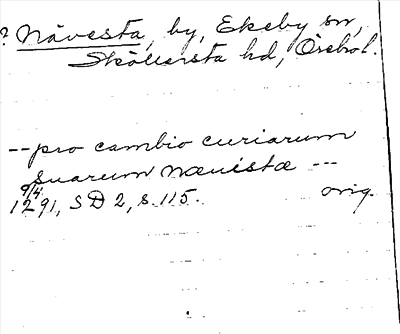 ? Nävesta, by, Ekeby sn,
Sköllersta hd, Örebro l.
-- pro cambio curiarum
suarum næuista ---
9/4
1291, SD 2, s. 115. orig.